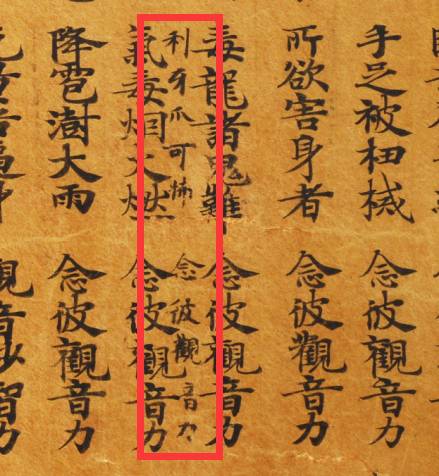 手足被杻械 念彼觀音力
所欲害身者 念彼觀音力
毒龍諸鬼難 念彼觀音力
利牙爪可怖 念彼觀音力
氣毒烟火燃 念彼觀音力
降雹澍大雨 念彼觀音力
苦逼身 觀音妙智力